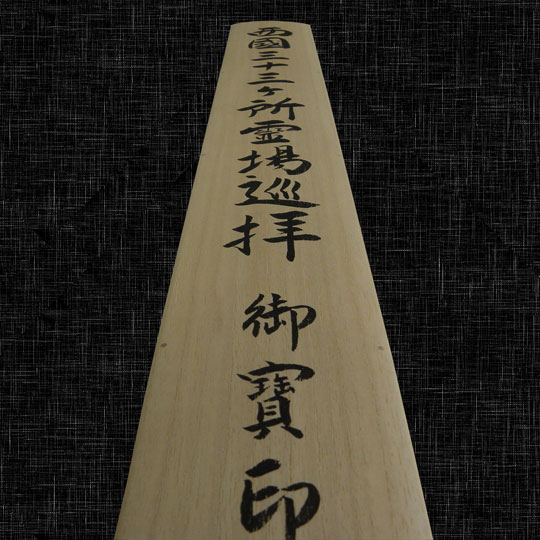 西國三十三ヶ所霊場巡拝 御寶印